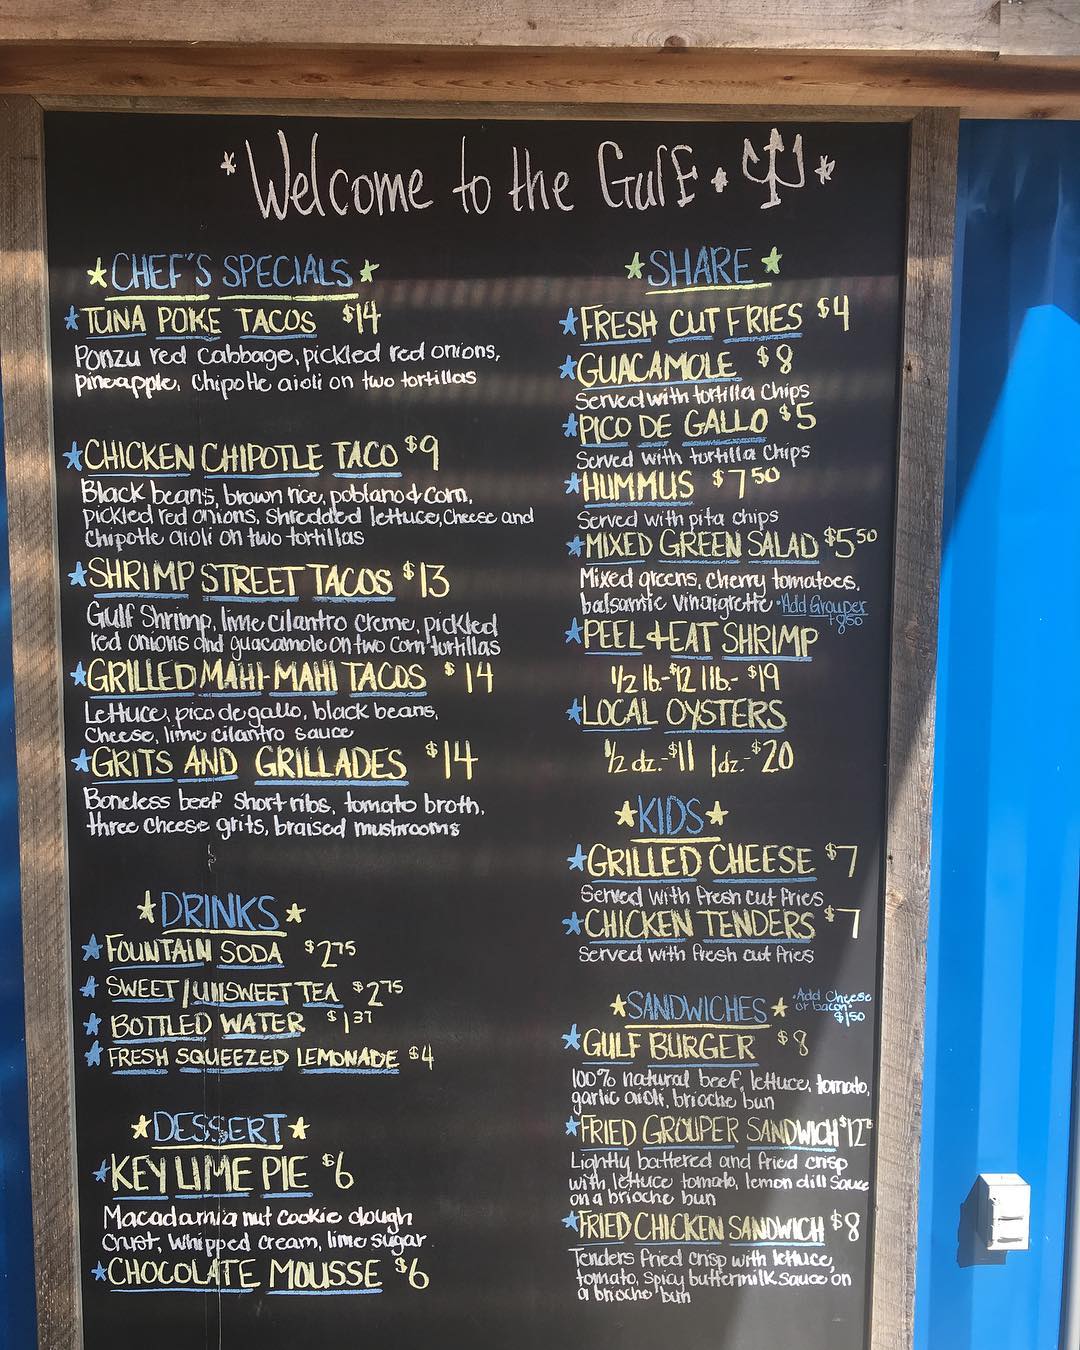 Welcome to the Gulf
CHEF'S SPECIALS
TUNA POKE TACOS $14
Ponzu red cabbage, pickled red onions,
pineapple, chipotle aioli on two tortillas
CHICKEN CHIPOTLE TACO $9
Black beans, brown rice, poblano & corn,
pickled red onions, shredded lettuce, cheese and
chipotle aioli on two tortillas
SHRIMP STREET TACOS $13
Gulf Shrimp, lime cilantro creme, pickled
red onions and guacamole on two corn tortillas
GRILLED MAHI-MAHI TACOS $14
Lettuce, pico de gallo, black beans,
cheese, lime cilantro sauce
GRITS AND GRILLADES $14
Boneless beef short ribs, tomato broth,
three cheese grits, braised mushrooms
DRINKS
FOUNTAIN SODA $2.75
SWEET/UNSWEET TEA $2.75
BOTTLED WATER $1.37
FRESH SQUEEZED LEMONADE $4
DESSERT
KEY LIME PIE $6
Macadamia nut cookie dough
crust, whipped cream, lime sugar
CHOCOLATE MOUSSE $6
SHARE
FRESH CUT FRIES $4
GUACAMOLE $8
Served with tortilla chips
PICO DE GALLO $5
Served with tortilla chips
HUMMUS $7.50
Served with pita chips
MIXED GREEN SALAD $5.50
Mixed greens, cherry tomatoes,
balsamtic vinaigrette • Add Grouper
+8.50
PEEL & EAT SHRIMP
1/2 lb.-$12 1lb.- $19
LOCAL OYSTERS
1/2 dz.-$11 1dz.-$20
KIDS
GRILLED CHEESE $7
Served with fresh cut fries
CHICKEN TENDERS $7
Served with fresh cut fries
SANDWICHES • Add Cheese
or bacon •
$1.50
GULF BURGER $8
100% natural beef, lettuce, tomato,
garlic aioli, brioche bun
FRIED GROUPER SANDWICH
Lightly battered and fried crisp
with lettuce tomato, lemon dill sauce
on a brioche bun
FRIED CHICKEN SANDWICH $8
Tenders fried crisp with lettuce,
tomato, spicy buttermilk sauce on
a brioche bun